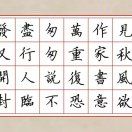 見秋風欲
作家書意
萬重復恐
匆匆說不
盡行人臨
發又開封